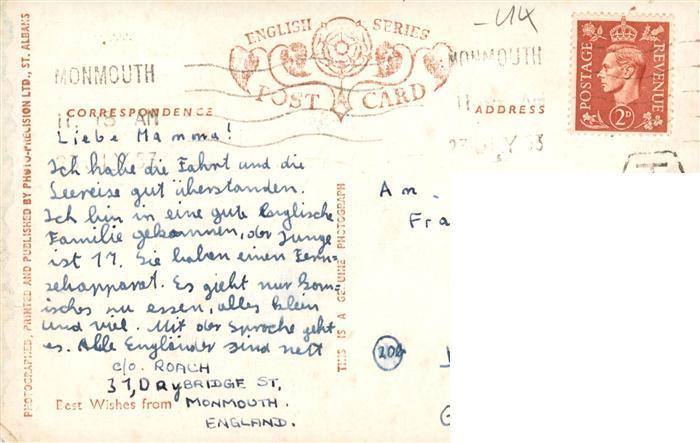 PHOTOGRAPHED, PRINTED AND PUBLISHED BY PHOTO-PRECISION LTD., ST. ALBANS
ENGLISH SERIES
POST CARD
MONMOUTH
MONMOUTH
POSTAGE REVENUE
2D
CORRESPONDENCE
ADDRESS
Liebe Mamma!
Ich habe die Fahrt und die
Seereise gut überstanden.
Ich bin in eine gute Englische
Familie gekommen, der Junge
ist 17. Sie haben einen Fern-
sehapparat. Es gieht nur Gom-
isches nu essen, alles klein
und viel. Mit der Sprache geht
es. Alle Engländer sind nett
c/o. ROACH
37, DRYBRIDGE ST,
Best Wishes from MONMOUTH.
ENGLAND.
THIS IS A GENUINE PHOTOGRAPH
An
Fra
204